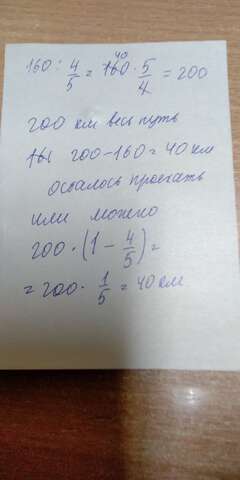 40
160 : 4/5 = 160 · 5/4 = 200
200 км весь путь
200 - 160 = 40 км
осталось проехать
или можно
200 · (1 - 4/5) =
= 200 · 1/5 = 40 км